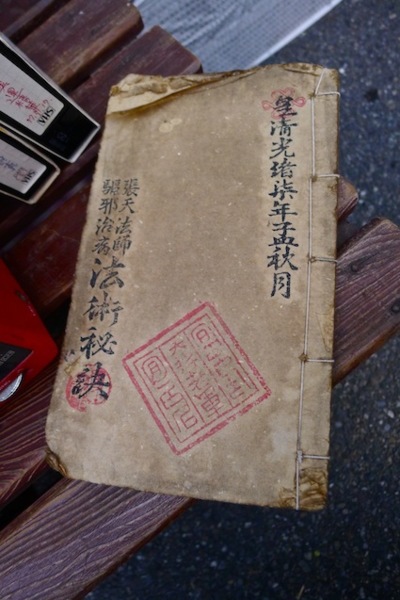 皇清光緒柒年孟秋月
張天法師
驅邪治病
法術秘訣
VHS
VHS